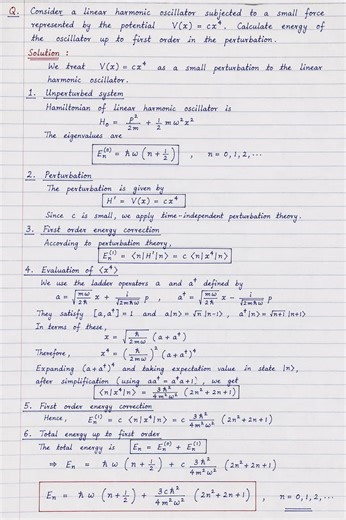 Q. Consider a linear harmonic oscillator subjected to a small force
represented by the potential V(x) = cx⁴. Calculate energy of
the oscillator up to first order in the perturbation.
Solution :
We treat V(x) = cx⁴ as a small perturbation to the linear
harmonic oscillator.
1. Unperturbed system
Hamiltonian of linear harmonic oscillator is
H₀ = p²/2m + 1/2 m ω² x²
The eigenvalues are
Eₙ⁽⁰⁾ = ħω (n + 1/2) , n = 0, 1, 2, ...
2. Perturbation
The perturbation is given by
H' = V(x) = cx⁴
Since c is small, we apply time-independent perturbation theory.
3. First order energy correction
According to perturbation theory,
Eₙ⁽¹⁾ = ⟨n|H'|n⟩ = c ⟨n|x⁴|n⟩
4. Evaluation of ⟨x⁴⟩
We use the ladder operators a and a† defined by
a = √(mω/2ħ) x + i/√(2mωħ) p , a† = √(mω/2ħ) x − i/√(2mωħ) p
They satisfy [a, a†] = 1 and a|n⟩ = √n |n-1⟩, a†|n⟩ = √n+1 |n+1⟩
In terms of these,
x = √(ħ/2mω) (a + a†)
Therefore, x⁴ = (ħ/2mω)² (a + a†)⁴
Expanding (a + a†)⁴ and taking expectation value in state |n⟩,
after simplification (using aa† = a†a + 1) , we get
⟨n|x⁴|n⟩ = 3ħ²/4m²ω² (2n² + 2n + 1)
5. First order energy correction
Hence, Eₙ⁽¹⁾ = c ⟨n|x⁴|n⟩ = c 3ħ²/4m²ω² (2n² + 2n + 1)
6. Total energy up to first order
The total energy is Eₙ = Eₙ⁽⁰⁾ + Eₙ⁽¹⁾
⇒ Eₙ = ħω (n + 1/2) + c 3ħ²/4m²ω² (2n² + 2n + 1)
Eₙ = ħω (n + 1/2) + 3cħ²/4m²ω² (2n² + 2n + 1) , n = 0, 1, 2, ...